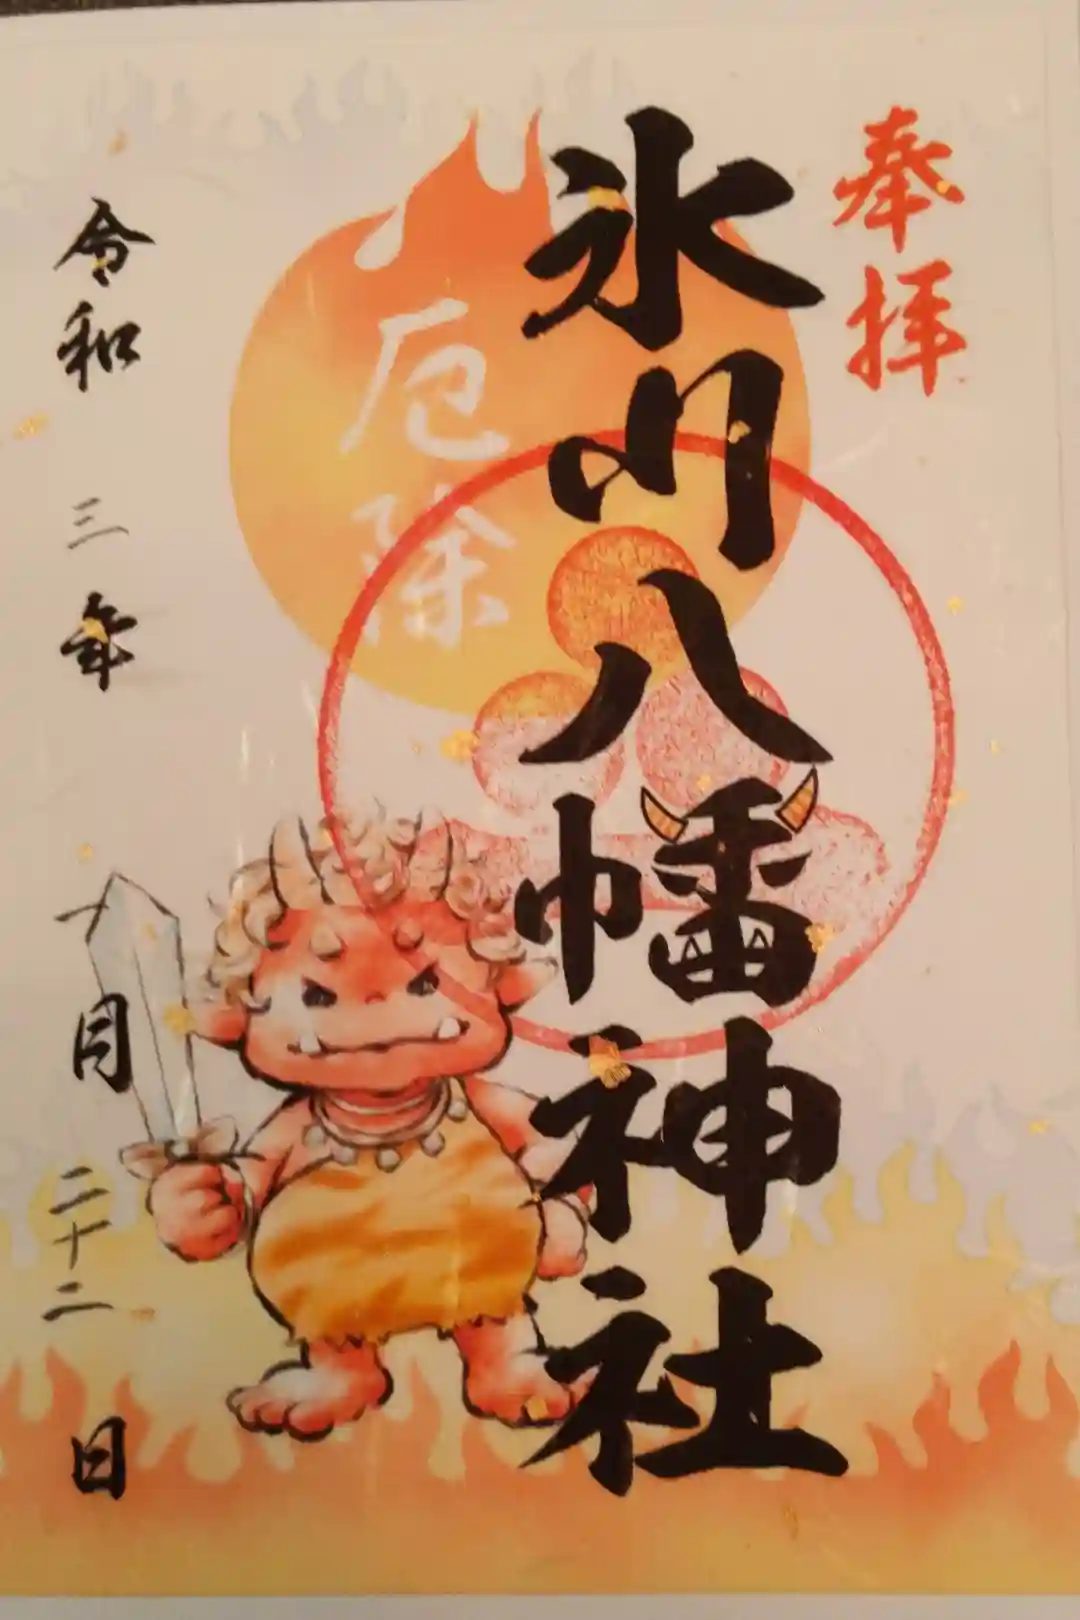 奉拝
氷川八幡神社
厄除
令和三年十月二十二日